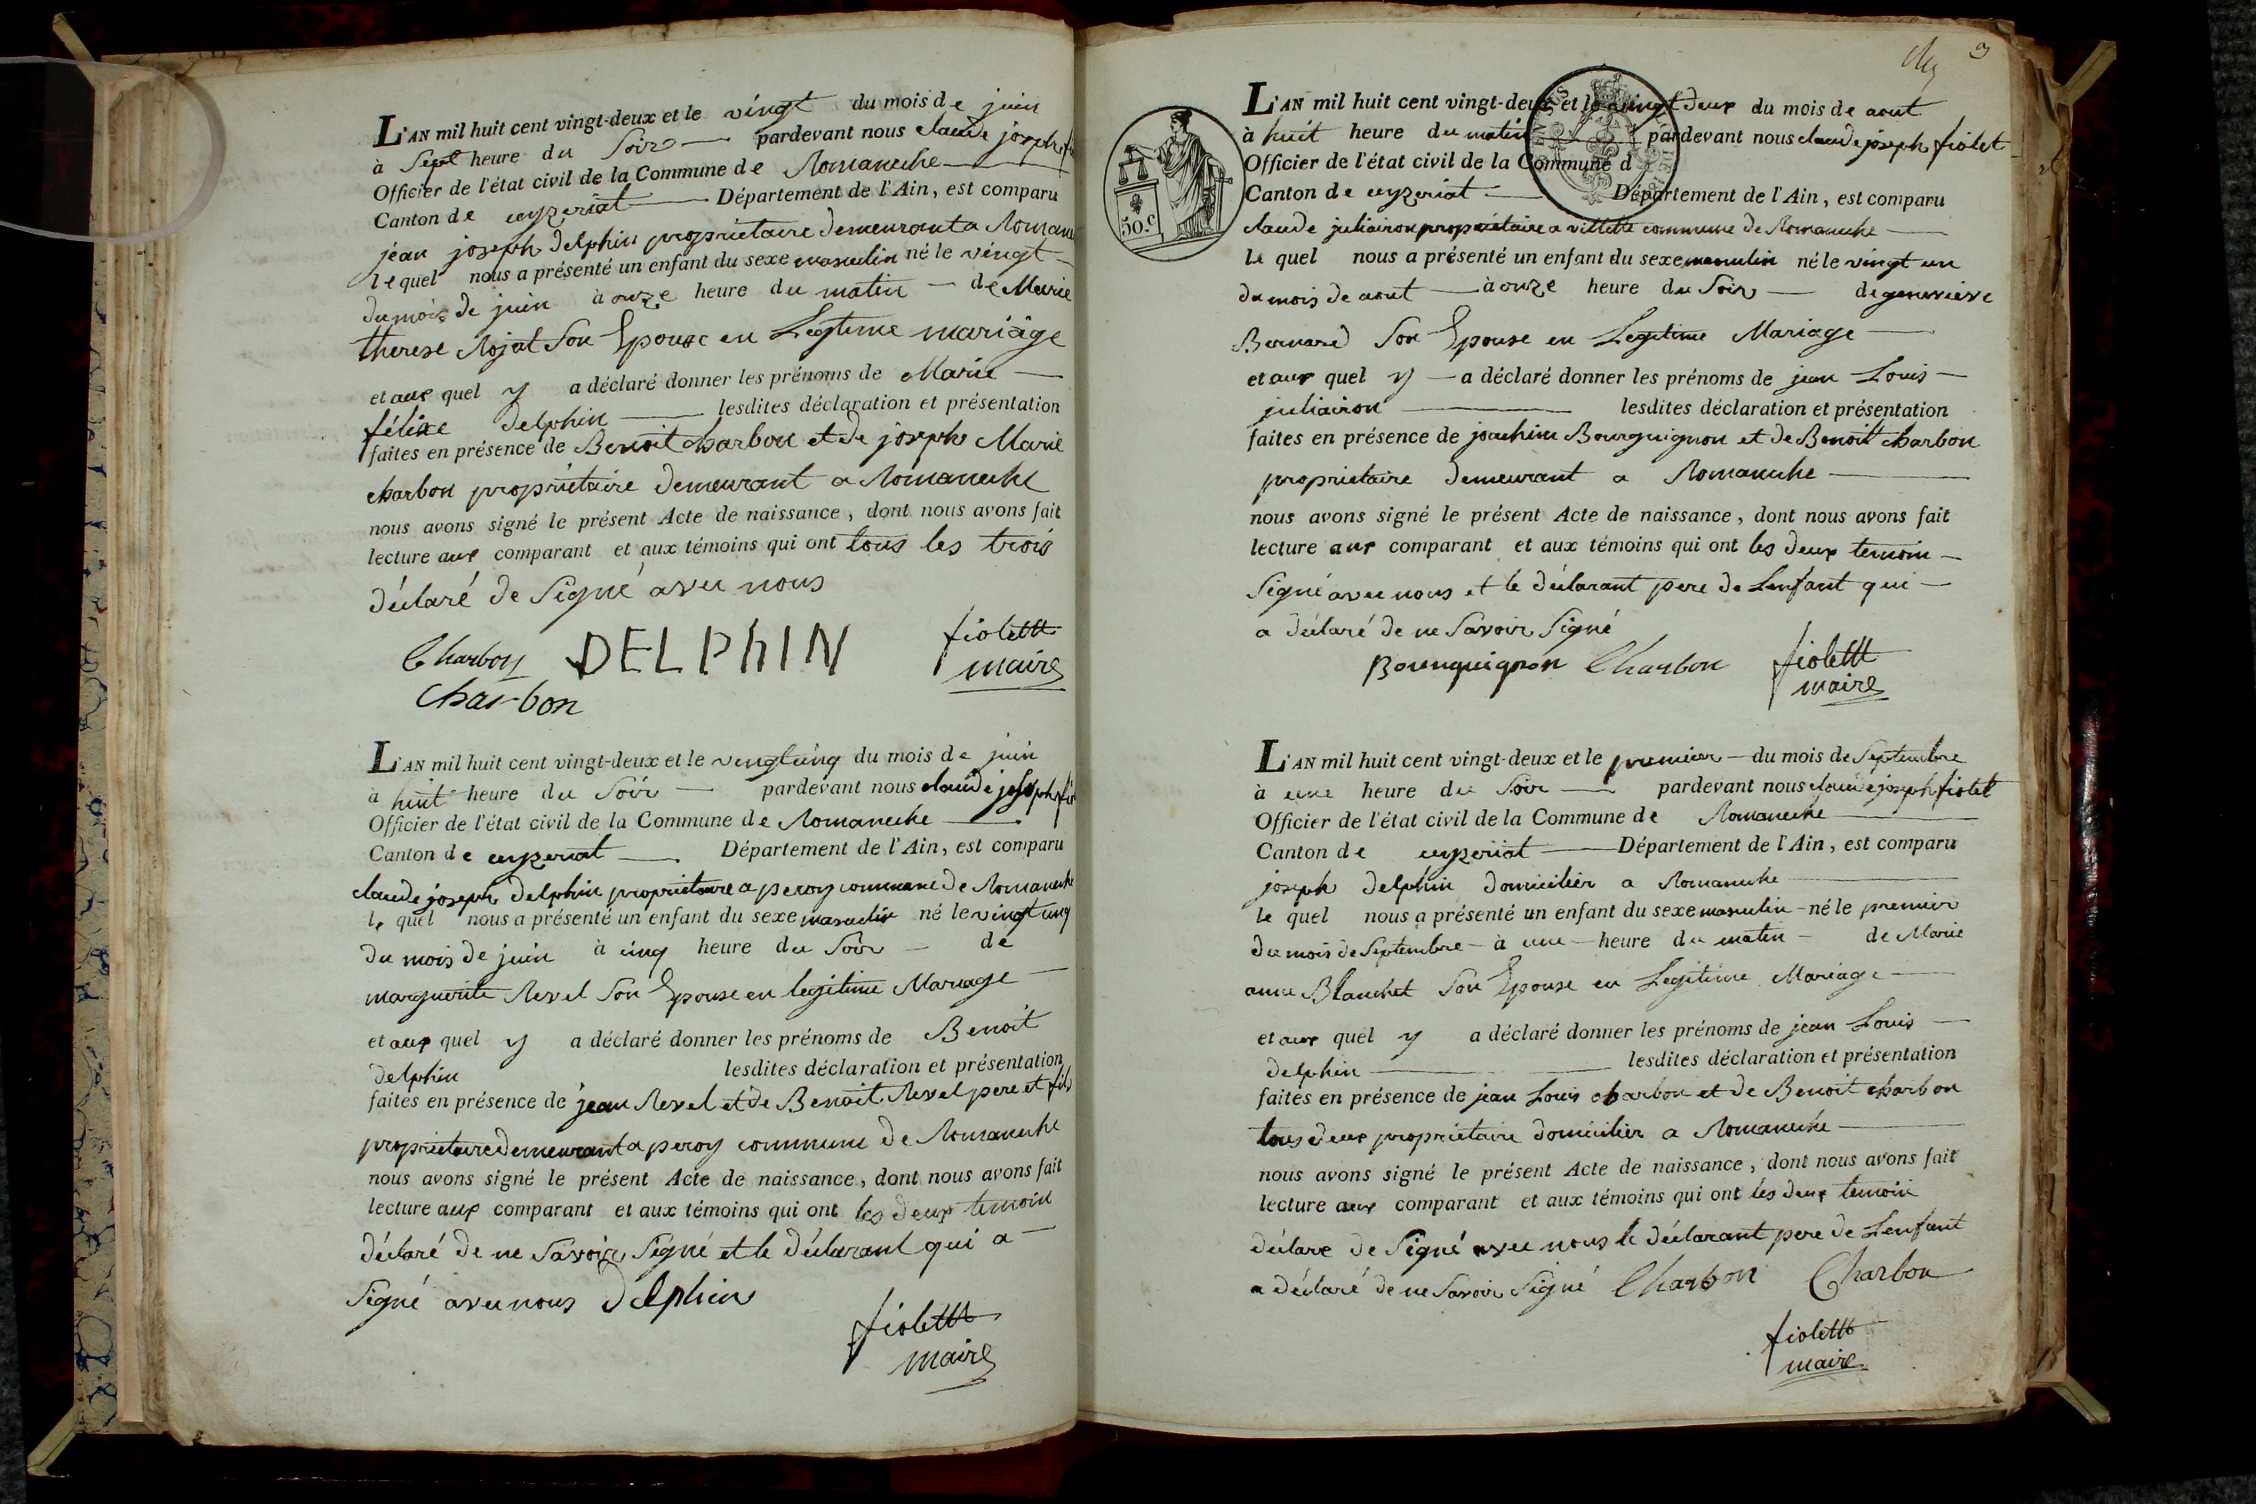 L'AN mil huit cent vingt-deux et le vingt du mois de juin
à Sept heure du Soir pardevant nous claude joseph
Officier de l'état civil de la Commune de Romaneche
Canton de ceyzeriat Département de l'Ain, est comparu
jean joseph delphin proprietaire demeurant a Romane
le quel nous a présenté un enfant du sexe masculin né le vingt
du mois de juin à onze heure du matin de Marie
therese Rojat Son Epouse en Legitime mariage
et aux quel y a déclaré donner les prénoms de Marie
félixe delphin lesdites déclaration et présentation
faites en présence de Benoit charbon et de joseph Marie
charbon proprietaire demeurant a Romaneche
nous avons signé le présent Acte de naissance, dont nous avons fait
lecture aux comparant et aux témoins qui ont tous les trois
déclaré de Signé avec nous
Charbon DELPhIN fiolett
maire
Charbon
L'AN mil huit cent vingt-deux et le vingtcinq du mois de juin
à huit heure du Soir pardevant nous claude joseph
Officier de l'état civil de la Commune de Romaneche
Canton de ceyzeriat Département de l'Ain, est comparu
claude joseph delphin proprietaire a peroy commune de Romaneche
le quel nous a présenté un enfant du sexe masculin né le vingt cinq
du mois de juin à cinq heure du Soir de
marguerite Revel Son Epouse en legitime Mariage
et aux quel y a déclaré donner les prénoms de Benoit
delphin lesdites déclaration et présentation
faites en présence de jean Revel et de Benoit Revel pere et fils
proprietaire demeurant a peroy commune de Romaneche
nous avons signé le présent Acte de naissance, dont nous avons fait
lecture aux comparant et aux témoins qui ont les deux temoin
déclaré de ne Savoir Signé et le déclarant qui a
Signé avec nous Delphin
fiolett
maire
L'AN mil huit cent vingt-deux et le vingt deux du mois de aout
à huit heure du matin pardevant nous claude joseph fiolet
Officier de l'état civil de la Commune d
Canton de ceyzeriat Département de l'Ain, est comparu
50.c
claude juliairon proprietaire a villette commune de Romaneche
le quel nous a présenté un enfant du sexe masculin né le vingt un
du mois de aout à onze heure du Soir de genevieve
Bernard Son Epouse en Legitime Mariage
et aux quel y a déclaré donner les prénoms de jean Louis
juliairon lesdites déclaration et présentation
faites en présence de joachim Bourguignon et de Benoit charbon
proprietaire demeurant a Romaneche
nous avons signé le présent Acte de naissance, dont nous avons fait
lecture aux comparant et aux témoins qui ont les deux temoin
Signé avec nous et le déclarant pere de Lenfant qui
a déclaré de ne Savoir Signé
Bourguignon Charbon fiolett
maire
L'AN mil huit cent vingt-deux et le premier du mois de Septembre
à une heure du Soir pardevant nous claude joseph fiolet
Officier de l'état civil de la Commune de Romaneche
Canton de ceyzeriat Département de l'Ain, est comparu
joseph delphin domicilier a Romaneche
le quel nous a présenté un enfant du sexe masculin né le premier
du mois de Septembre à une heure du matin de Marie
anne Blanchet Son Epouse en Legitime Mariage
et aux quel y a déclaré donner les prénoms de jean Louis
delphin lesdites déclaration et présentation
faites en présence de jean Louis charbon et de Benoit charbon
tous deux proprietaire domicilier a Romaneche
nous avons signé le présent Acte de naissance, dont nous avons fait
lecture aux comparant et aux témoins qui ont les deux temoin
déclare de Signé avec nous le déclarant pere de Lenfant
a déclaré de ne Savoir Signé Charbon Charbon
fiolett
maire